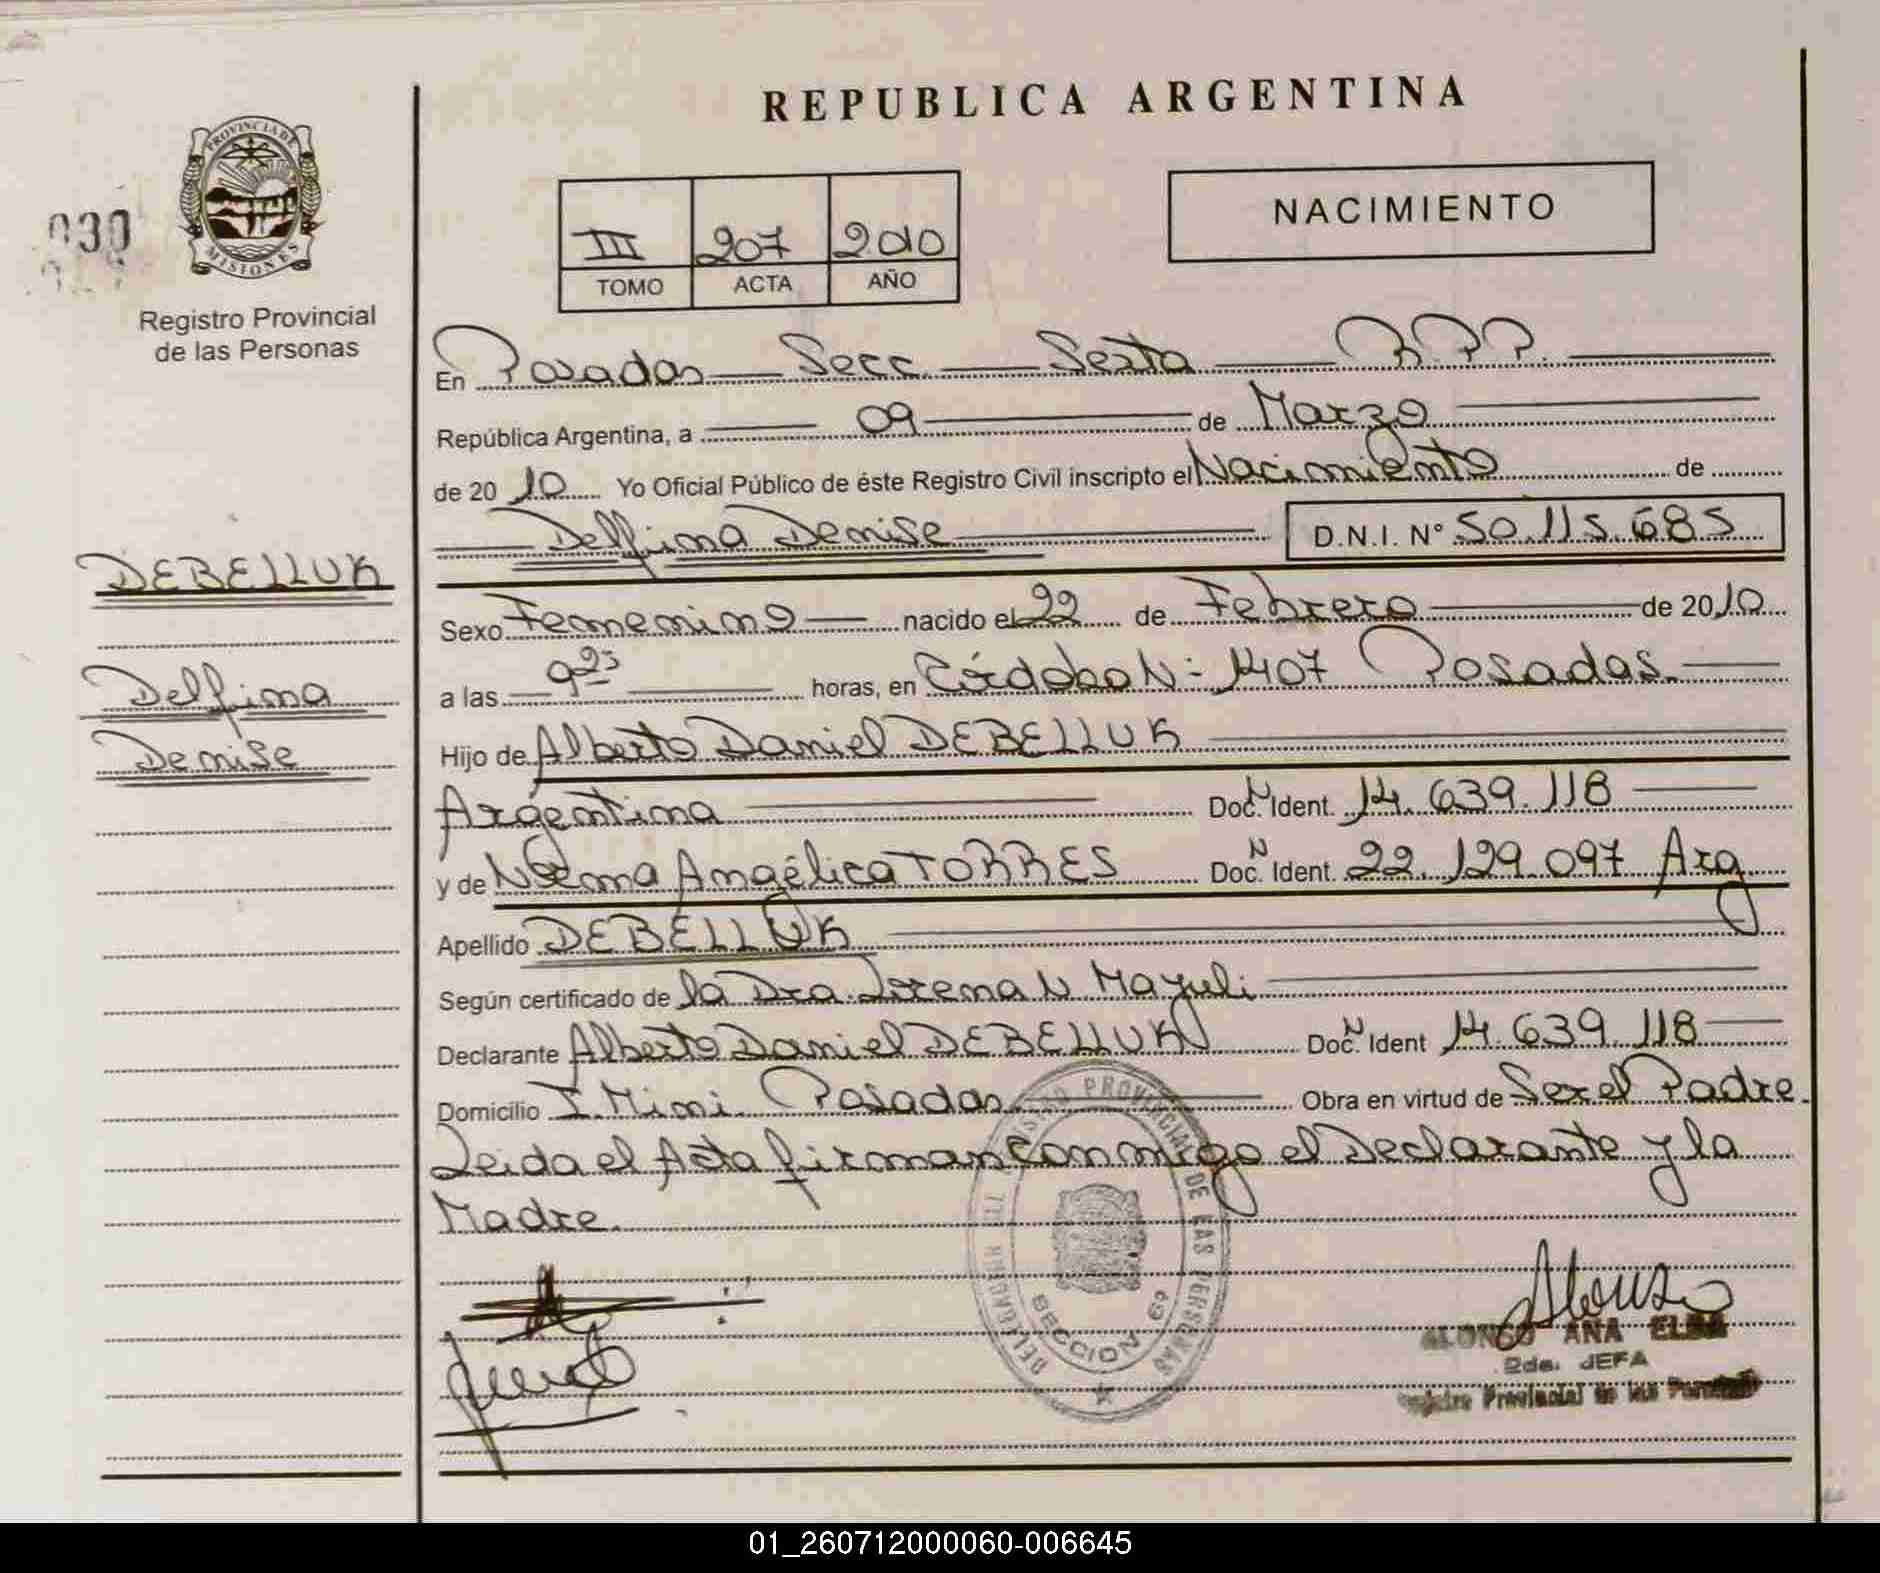 REPUBLICA ARGENTINA
PROVINCIA DE
MISIONES
030
Registro Provincial
de las Personas
III 207 2010
TOMO ACTA AÑO
NACIMIENTO
En Posadas Secc. Sexta R.P.P.
República Argentina, a 09 de Marzo
de 2010 Yo Oficial Público de éste Registro Civil inscripto el Nacimiento de
Delfina Denise D.N.I. Nº 50.115.685
DEBELLUK
Delfina
Denise
Sexo Femenino nacido el 22 de Febrero de 2010
a las 9 25 horas, en Córdoba Nº 1407 Posadas.
Hijo de Alberto Daniel DEBELLUK
Argentina Doc. N Ident. 14.639.118
y de Norma Angélica TORRES Doc. N Ident. 22.129.097 Arg
Apellido DEBELLUK
Según certificado de la Dra. Lorena N Mayuli
Declarante Alberto Daniel DEBELLUK Doc. N Ident 14.639.118
Domicilio I. Mini. Posadas Obra en virtud de Ser el Padre.
Leida el Acta firman conmigo el Declarante y la
Madre.
PROVINCIAL DE LAS PERSONAS
SECCION 6ª
ALONSO ANA ELBA
2da. JEFA
Registro Provincial de las Personas
01_260712000060-006645